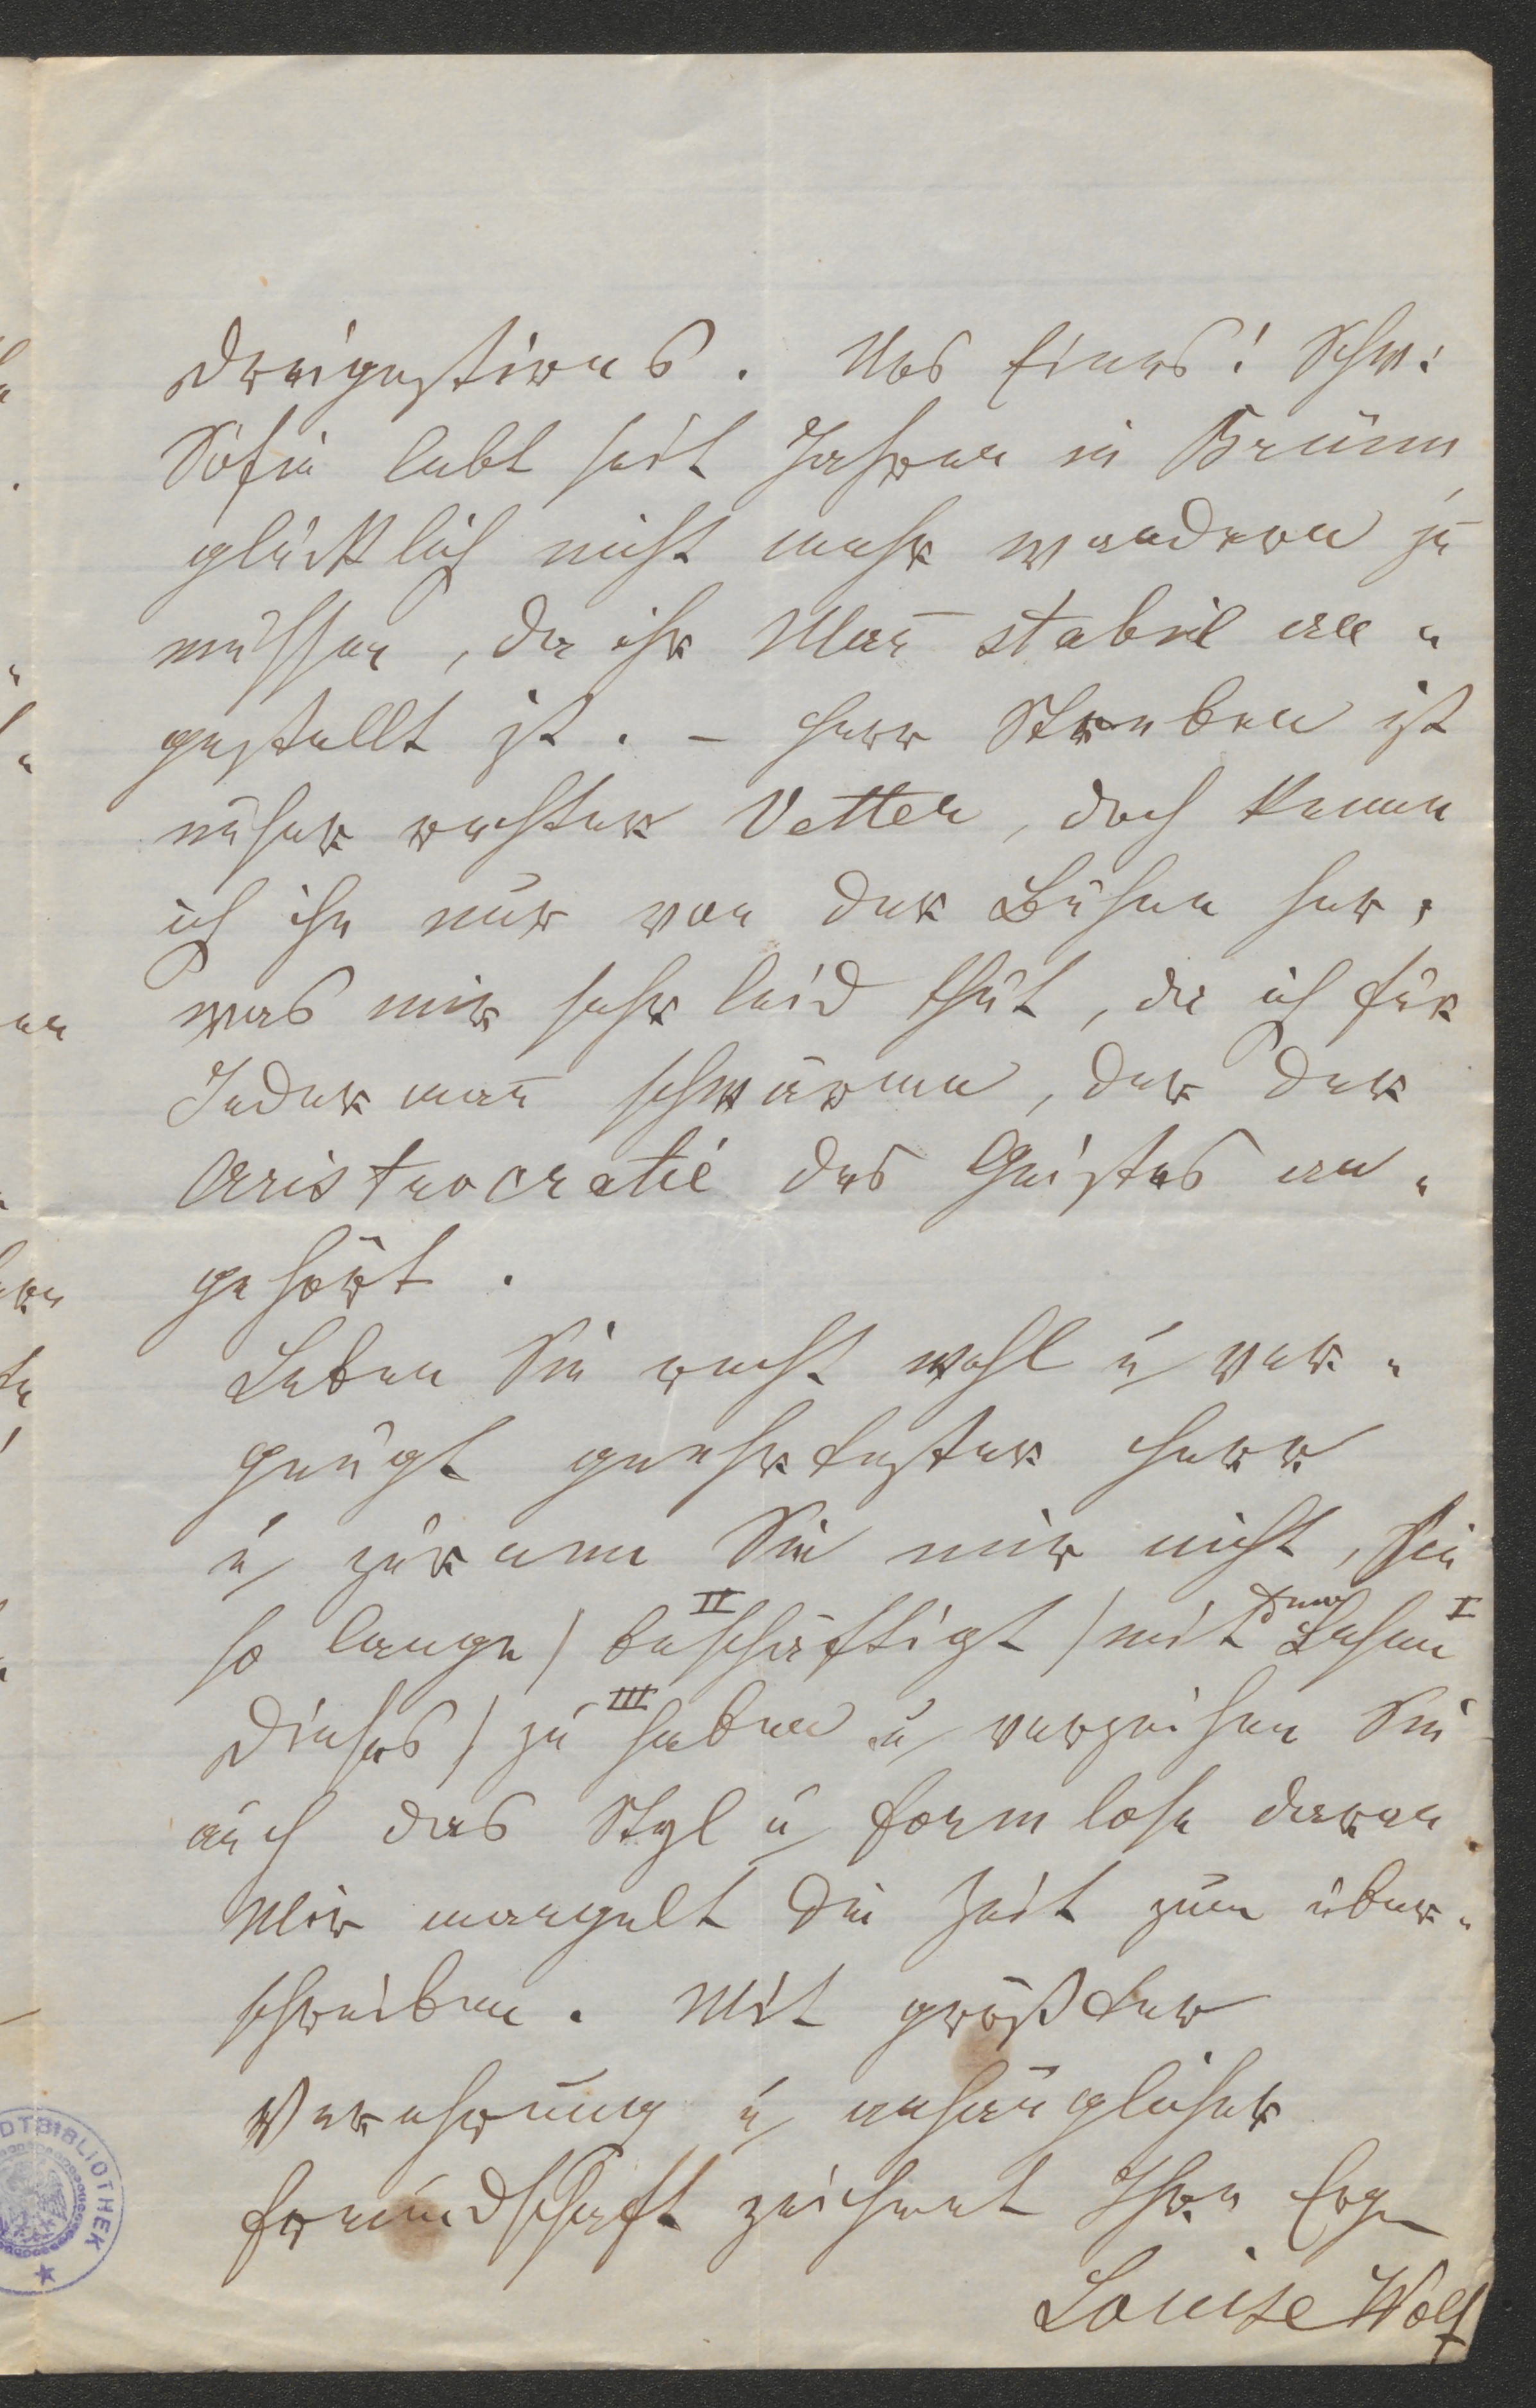 Dreigestirns. Nos Eines! Schw:
Sofie lebt seit Jahren in Brünn
glücklich nicht mehr wandern zu
müssen, da ihr Man̄ stabil an„
gestellt ist. – Herr Streben ist
unser rechter Vetter, doch kenne
ich ihn nur von der Bühne her,
was mir sehr leid thut, da ich für
Jederman̄ schwärme, der der
Aristrocratie des Geistes an„
gehört.
Leben Sie recht wohl u ver„
gnügt geehrtester Herr
u zürnen Sie mir nicht, Sie
so lange / II beschäftigt / mit dem Lesen I
Dieses / zu III haben u verzeihen Sie
auch das Styl u formlose daran.
Mir mangelt die Zeit zum über„
schreiben. Mit größter
Verehrung u anhänglicher
Freundschaft zeichnet Ihre Erg
Louise Wolf
DTBIBLIOTHEK